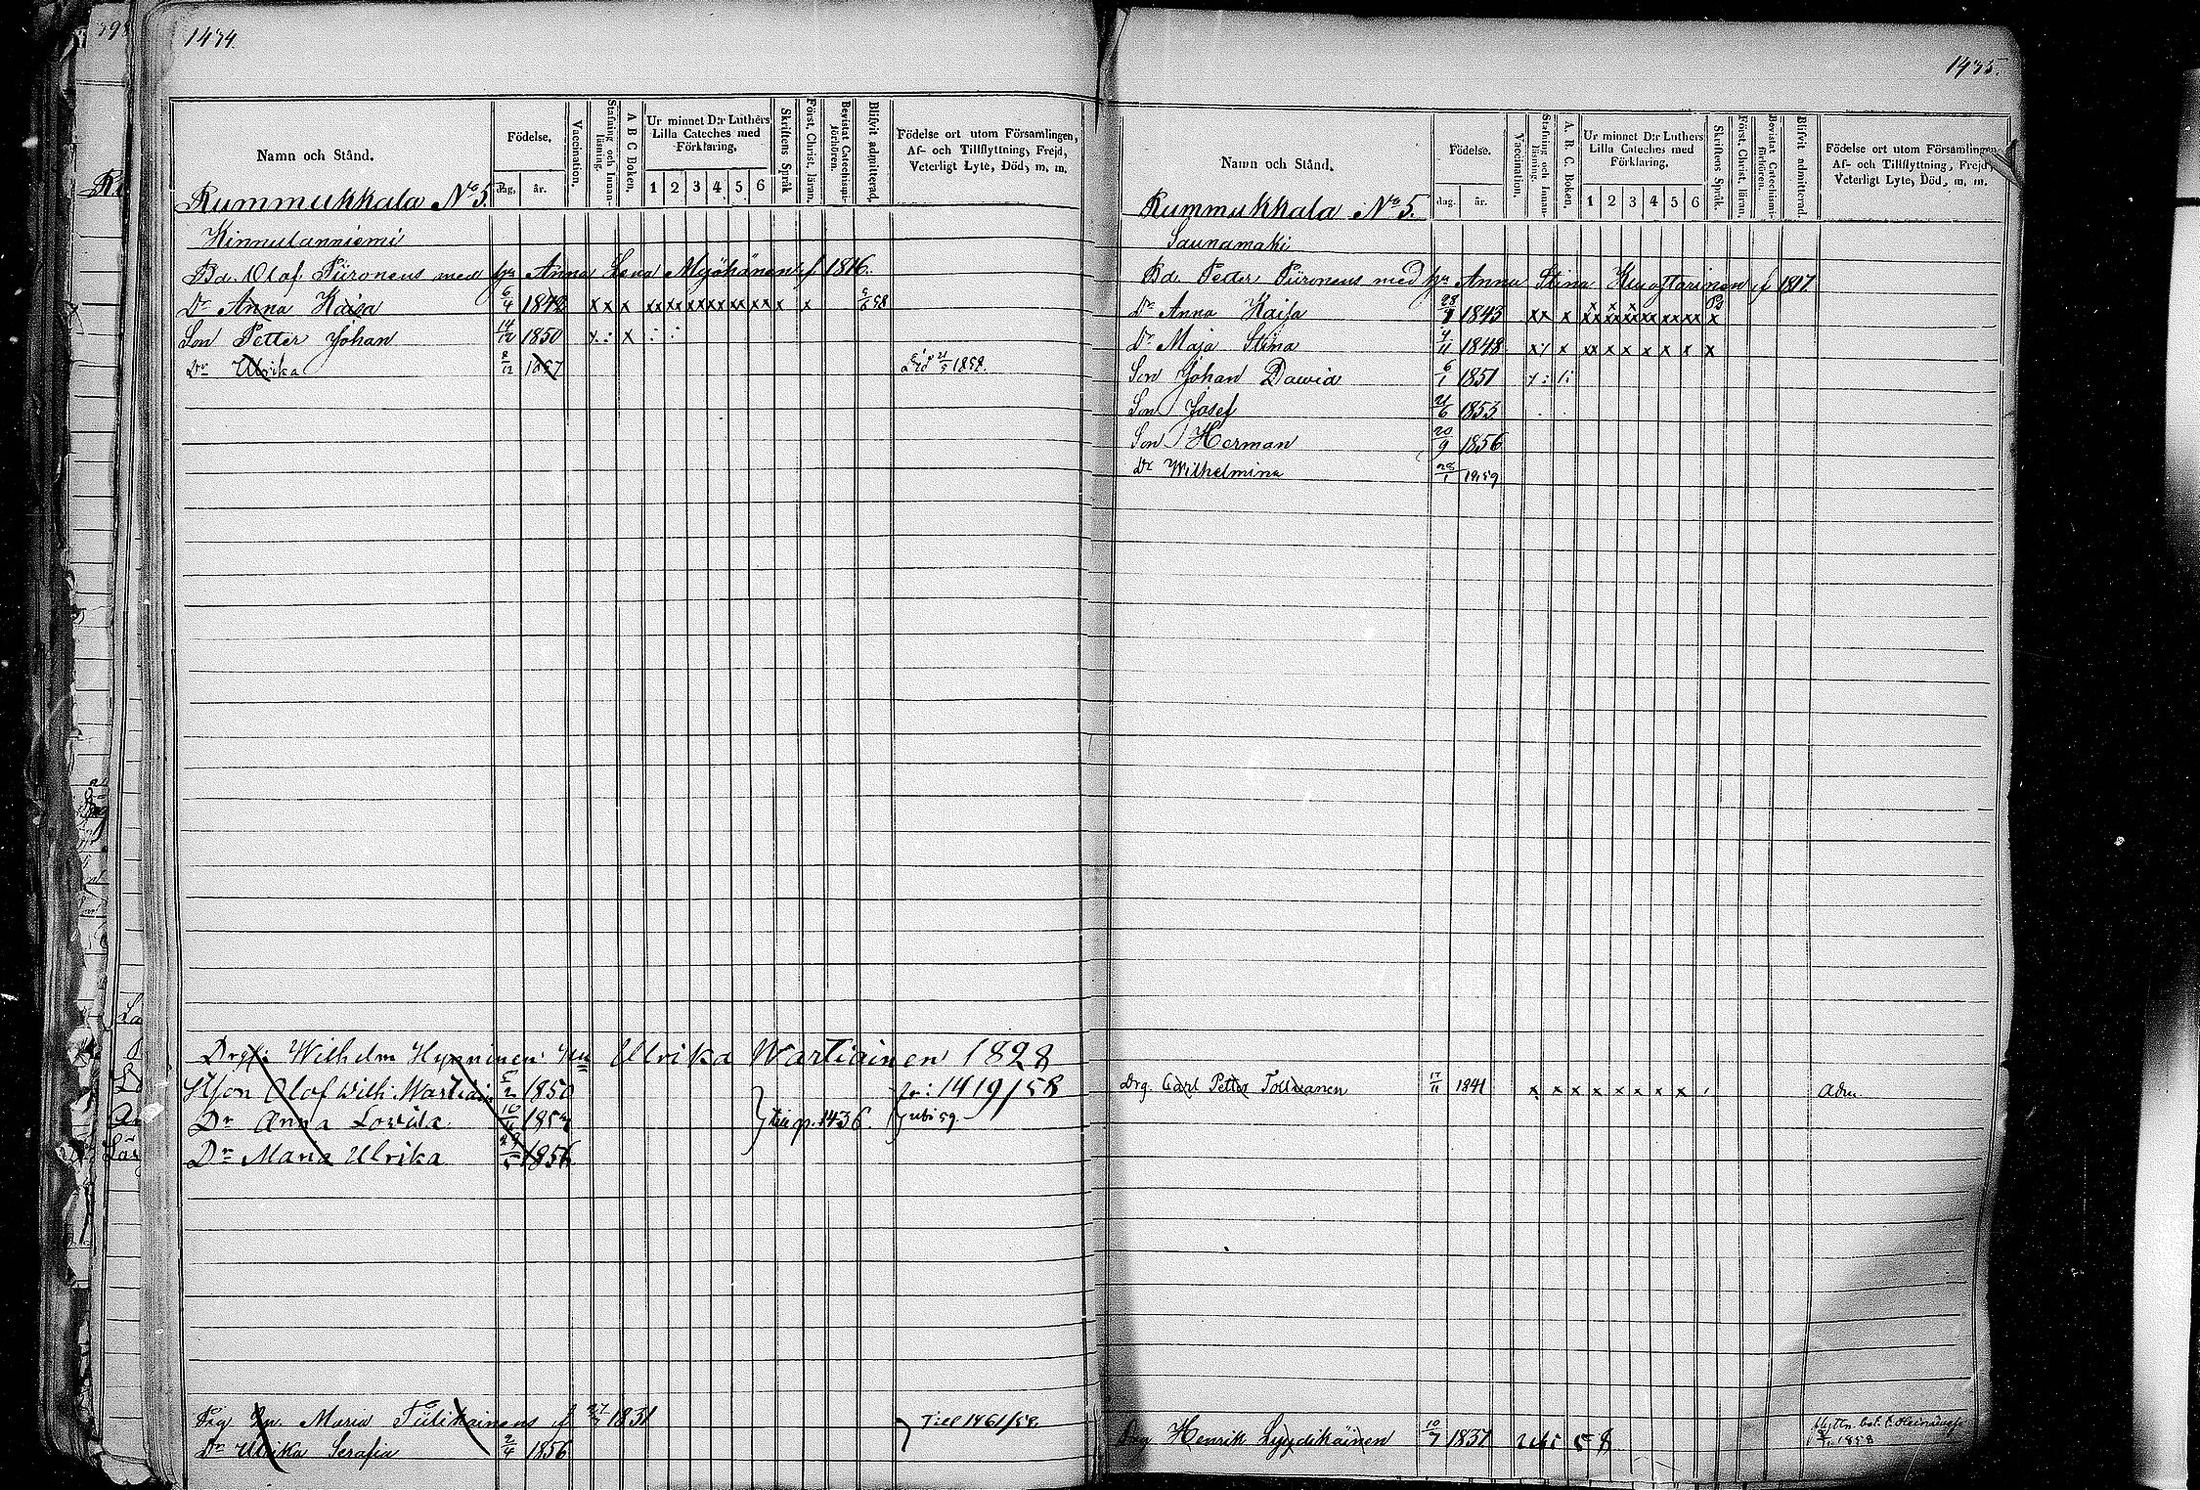 1434.
Namn och Stånd.
Födelse.
dag.
år.
Vaccination.
Stafning och Innanläsning.
A B C Boken.
Ur minnet D:r Luthers Lilla Cateches med Förklaring.
1 2 3 4 5 6
Skriftens Språk
Först. Christ. läran.
Bevistat Catechismiförhören.
Blifvit admitterad.
Födelse ort utom Församlingen, Af- och Tillflyttning, Frejd, Veterligt Lyte, Död, m. m.
Rummukkala No 5.
Kinnulanniemi
Bd. Olof Piironens med hu Anna Lena Myöhänen f 1816.
Dr Anna Kaisa 6/4 1842 x x x xx xx xx xx xx xx x x
Son Petter Johan 14/12 1850 x : x : :
Dr Ulrika 8/12 1857 Död 21/5 1858.
Drg: Wilhelm Hynninen: hu Ulrika Wartiainen 1828
St. son Olof Wilh. Wartiain 5/2 1850 fr: 1419/58
Dr Anna Lovisa 10/11 1852 till p. 1436. ubi 59.
Dr Maria Ulrika 29/5 1856
Drg Enk. Maria Tiilikainens f 27/7 1831 Till 1461/58
Dr Ulrika Serafia 2/4 1856
1435.
Namn och Stånd.
Födelse.
dag.
år.
Vaccination.
Stafning och Innanläsning.
A. B. C. Boken.
Ur minnet D:r Luthers Lilla Cateches med Förklaring.
1 2 3 4 5 6
Skriftens Språk.
Först. Christ. läran.
Bevistat Catechismiförhören.
Blifvit admitterad.
Födelse ort utom Församlingen, Af- och Tillflyttning, Frejd, Veterligt Lyte, Död, m. m.
Rummukkala No 5.
Saunamäki
Bd. Petter Piironens med hu Anna Stina Kuosmarinen f 1817
Dr Anna Kaisa 1843
Dr Maja Stina 1848
Son Johan Dawid 6/1 1851
Son Josef 21/6 1853
Son Herman 20/9 1856
Dr Wilhelmina 28/1 1859
Drg. Carl Petter Tolwanen 17/11 1841 x x x x x x x x Adm.
Drg Henrik Lyydikäinen 10/7 1837 ubi 58
1858